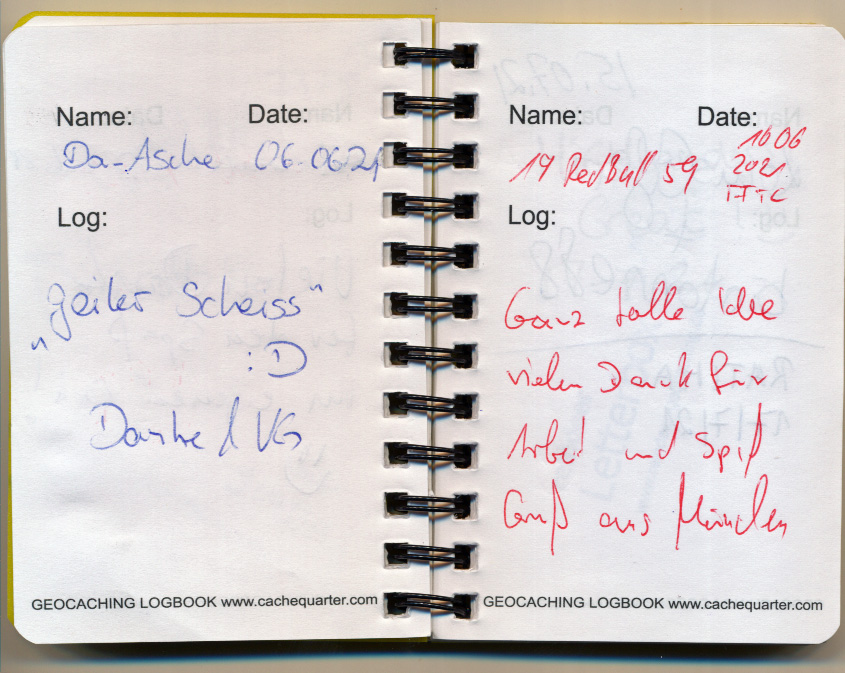 Name: Date:
Da-Asche 06.06.21
Log:
„geiler Scheiss“
:D
Danke / VG
GEOCACHING LOGBOOK www.cachequarter.com
Name: Date:
19 RedBull 59 10 06
2021
TFTC
Log:
Ganz tolle Idee
vielen Dank für
Arbeit und Spaß
Gruß aus München
GEOCACHING LOGBOOK www.cachequarter.com